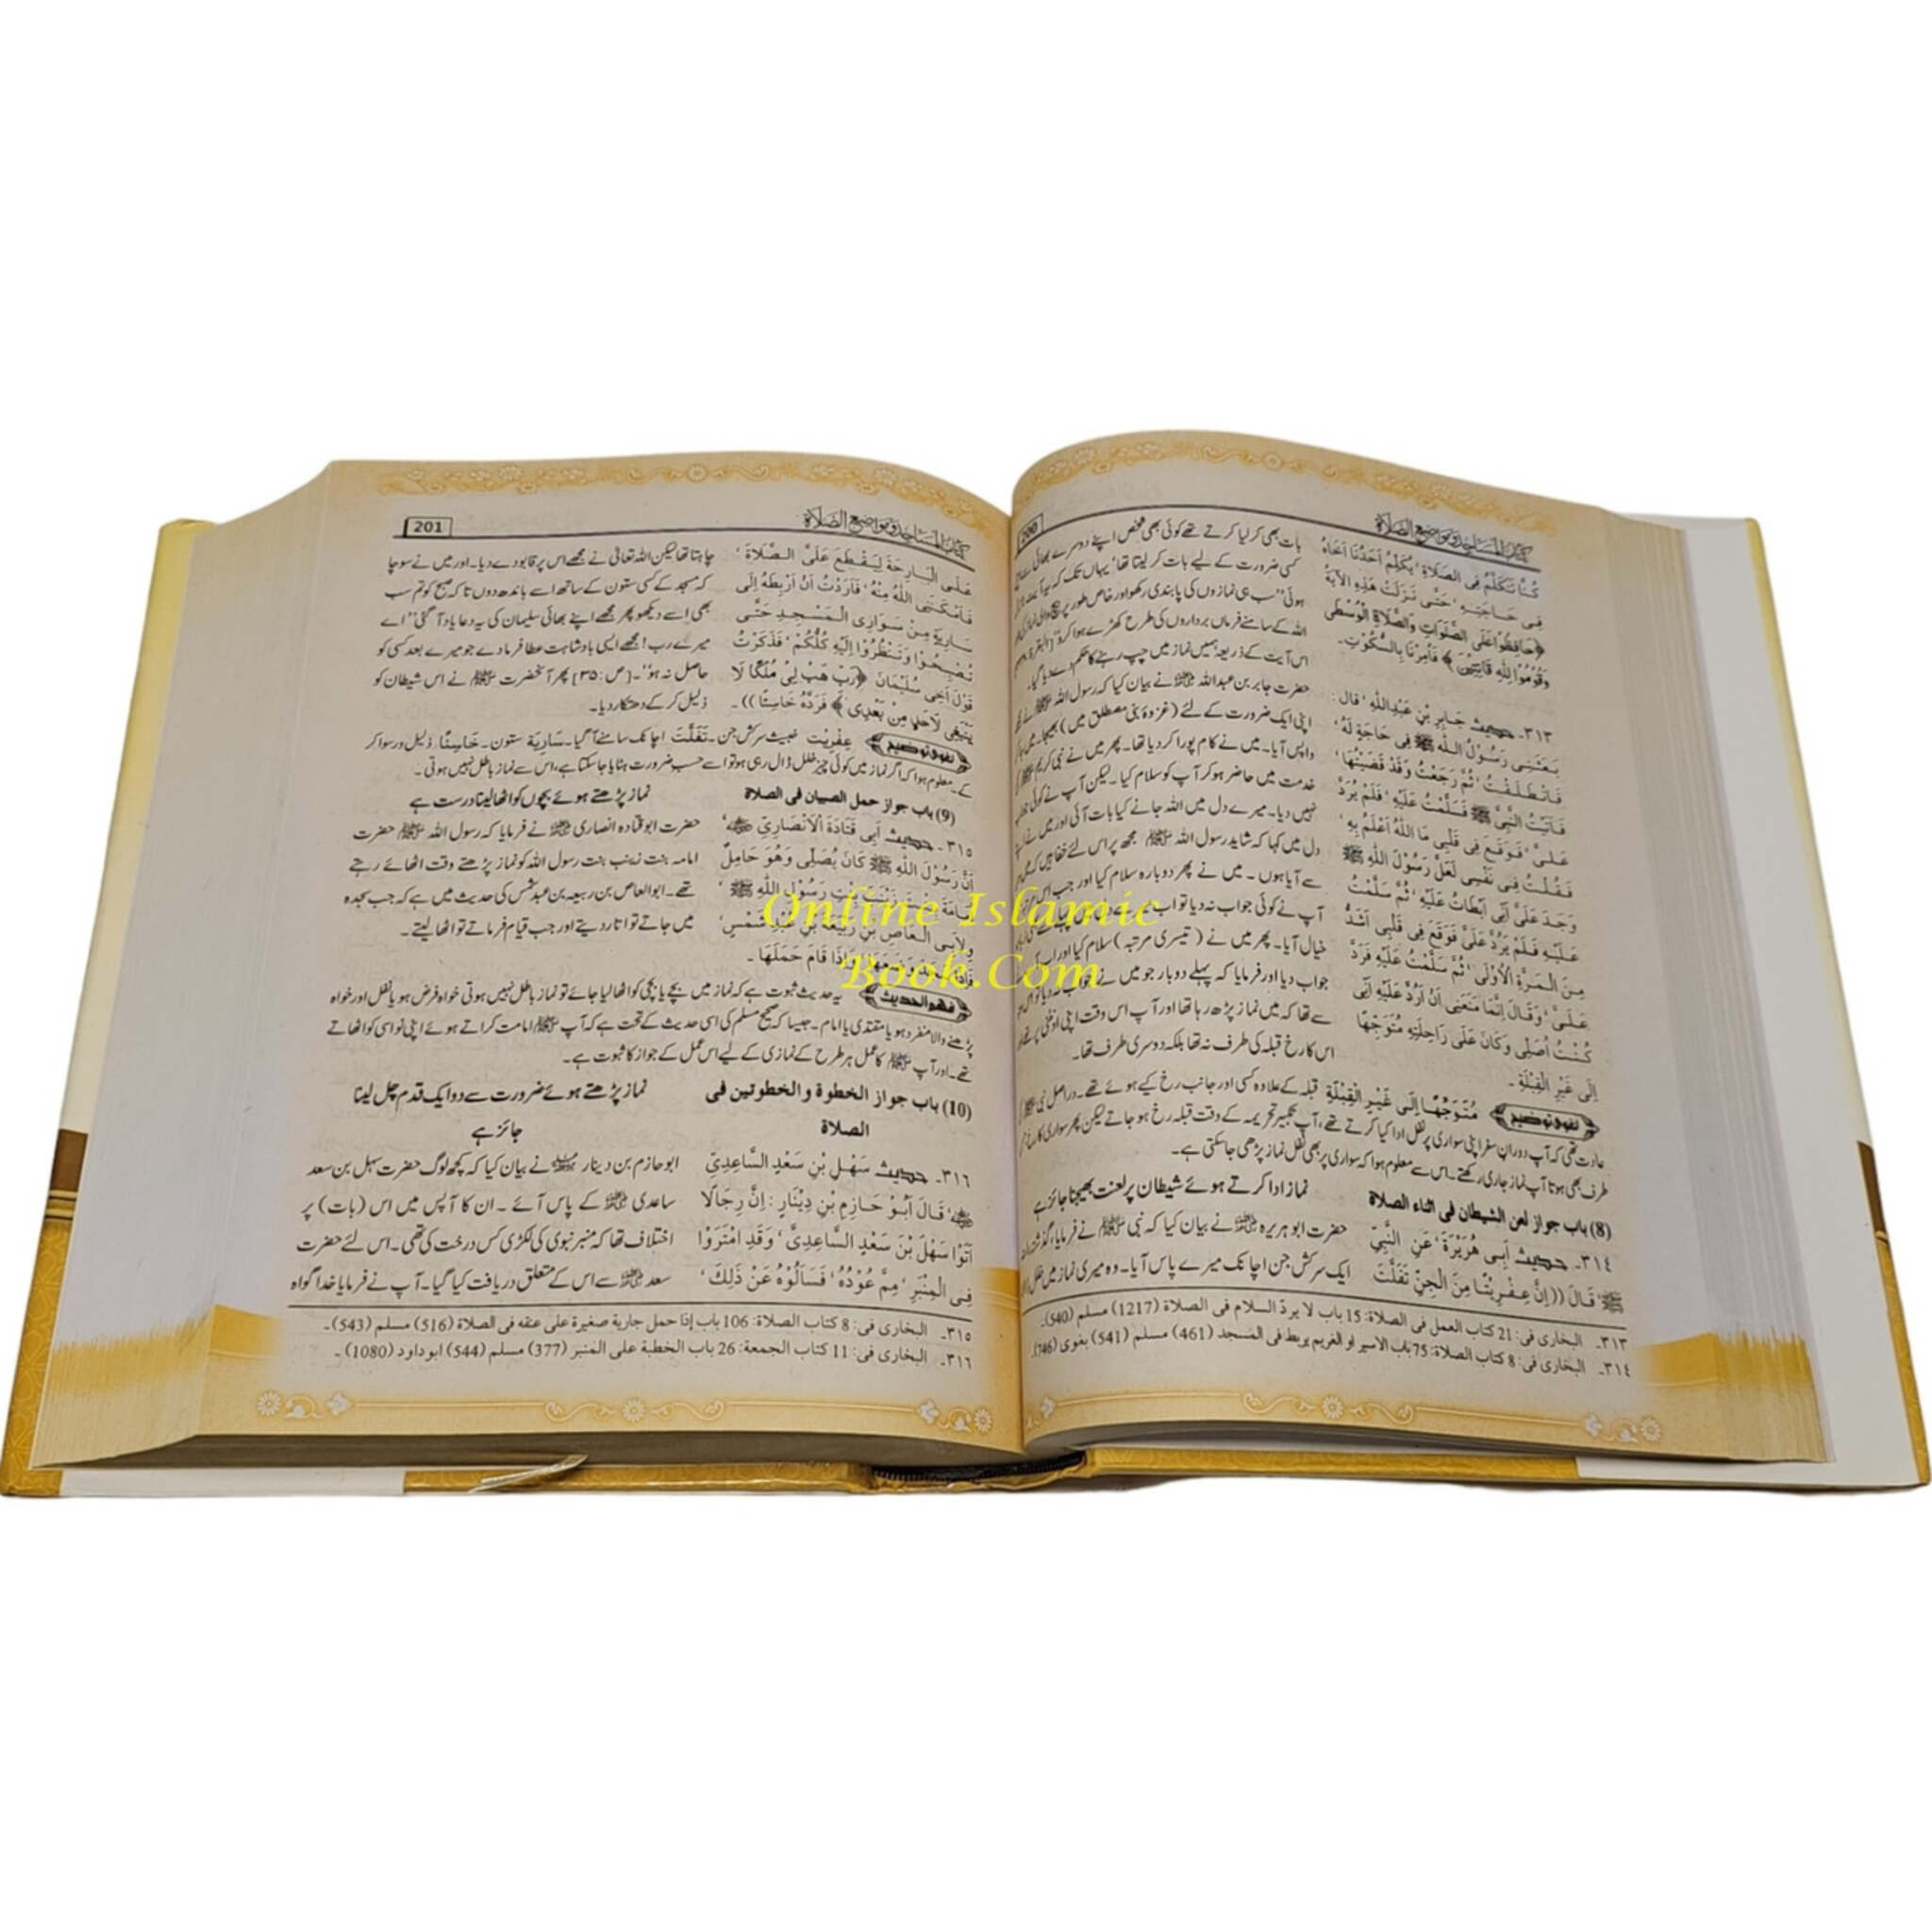 كتاب المساجد ومواضع الصلاة
200
كُنَّا نَتَكَلَّمُ فِي الصَّلَاةِ، يُكَلِّمُ أَحَدُنَا أَخَاهُ
فِي حَاجَتِهِ، حَتَّى نَزَلَتْ هَذِهِ الْآيَةُ
﴿حَافِظُوا عَلَى الصَّلَوَاتِ وَالصَّلَاةِ الْوُسْطَى
وَقُومُوا لِلَّهِ قَانِتِينَ﴾ فَأُمِرْنَا بِالسُّكُوتِ۔
٣١٣۔ حديث جَابِرِ بْنِ عَبْدِ اللَّهِ، قَالَ:
بَعَثَنِي رَسُولُ اللَّهِ ﷺ فِي حَاجَةٍ لَهُ،
فَانْطَلَقْتُ، ثُمَّ رَجَعْتُ وَقَدْ قَضَيْتُهَا،
فَأَتَيْتُ النَّبِيَّ ﷺ فَسَلَّمْتُ عَلَيْهِ، فَلَمْ يَرُدَّ
عَلَيَّ، فَوَقَعَ فِي قَلْبِي مَا اللَّهُ أَعْلَمُ بِهِ،
فَقُلْتُ فِي نَفْسِي لَعَلَّ رَسُولَ اللَّهِ ﷺ
وَجَدَ عَلَيَّ أَنِّي أَبْطَأْتُ عَلَيْهِ، ثُمَّ سَلَّمْتُ
عَلَيْهِ فَلَمْ يَرُدَّ عَلَيَّ فَوَقَعَ فِي قَلْبِي أَشَدُّ
مِنَ الْمَرَّةِ الْأُولَى، ثُمَّ سَلَّمْتُ عَلَيْهِ فَرَدَّ
عَلَيَّ، وَقَالَ إِنَّمَا مَنَعَنِي أَنْ أَرُدَّ عَلَيْكَ أَنِّي
كُنْتُ أُصَلِّي وَكَانَ عَلَى رَاحِلَتِهِ مُتَوَجِّهًا
إِلَى غَيْرِ الْقِبْلَةِ۔
بات بھی کر لیا کرتے تھے کوئی بھی شخص اپنے دوسرے بھائی سے
کسی ضرورت کے لیے بات کر لیتا تھا' یہاں تک کہ یہ آیت
ہوئی "سب ہی نمازوں کی پابندی رکھو اور خاص طور پر
اللہ کے سامنے فرماں برداروں کی طرح کھڑے ہوا کرو"
اس آیت کے ذریعہ ہمیں نماز میں چپ رہنے کا حکم دے دیا گیا۔
حضرت جابر بن عبداللہ ؓ نے بیان کیا کہ رسول اللہ ﷺ نے
اپنی ایک ضرورت کے لئے (غزوۂ بنی مصطلق میں) بھیجا۔ میں
واپس آیا۔ میں نے کام پورا کر دیا تھا۔ پھر میں نے نبی کریم ﷺ کی
خدمت میں حاضر ہو کر آپ کو سلام کیا۔ لیکن آپ نے کوئی جواب
نہیں دیا۔ میرے دل میں اللہ جانے کیا بات آئی اور میں نے
دل میں کہا کہ شاید رسول اللہ ﷺ مجھ پر اس لئے خفا ہیں کہ میں
سے آیا ہوں۔ میں نے پھر دوبارہ سلام کیا اور جب اس
آپ نے کوئی جواب نہ دیا تو اب
خیال آیا۔ پھر میں نے (تیسری مرتبہ) سلام کیا اور اب
جواب دیا اور فرمایا کہ پہلے دو بار جو میں نے جواب نہ دیا تو اس
سے تھا کہ میں نماز پڑھ رہا تھا اور آپ اس وقت اپنی اونٹنی پر تھے
اس کا رخ قبلہ کی طرف نہ تھا بلکہ دوسری طرف تھا۔
لغوی توضیح مُتَوَجِّهًا إِلَى غَيْرِ الْقِبْلَةِ قبلہ کے علاوہ کسی اور جانب رخ کیے ہوئے تھے۔ دراصل نبی ﷺ
عادت تھی کہ آپ دوران سفر اپنی سواری پر نفل ادا کیا کرتے تھے، آپ تکبیر تحریمہ کے وقت قبلہ رخ ہو جاتے لیکن پھر سواری کا رخ
طرف بھی ہوتا آپ نماز جاری رکھتے۔ اس سے معلوم ہوا کہ سواری پر بھی نفل نماز پڑھی جا سکتی ہے۔
(8) باب جواز لعن الشيطان فى اثناء الصلاة
نماز ادا کرتے ہوئے شیطان پر لعنت بھیجنا جائز ہے
٣١٤۔ حديث أَبِي هُرَيْرَةَ، عَنِ النَّبِيِّ
ﷺ، قَالَ ((إِنَّ عِفْرِيتًا مِنَ الْجِنِّ تَفَلَّتَ
حضرت ابو ہریرہ ؓ نے بیان کیا کہ نبی ﷺ نے فرمایا، گذشتہ
ایک سرکش جن اچانک میرے پاس آیا۔ وہ میری نماز میں خلل
٣١٣۔ البخارى فى: 21 كتاب العمل فى الصلاة: 15 باب لا يرد السلام فى الصلاة (1217) مسلم (540)۔
٣١٤۔ البخارى فى: 8 كتاب الصلاة: 75 باب الاسير او الغريم يربط فى المسجد (461) مسلم (541) بغوى (746)۔
كتاب المساجد ومواضع الصلاة
201
عَلَى الْبَارِحَةَ لِيَقْطَعَ عَلَيَّ الصَّلَاةَ،
فَأَمْكَنَنِي اللَّهُ مِنْهُ، فَأَرَدْتُ أَنْ أَرْبِطَهُ إِلَى
سَارِيَةٍ مِنْ سَوَارِي الْمَسْجِدِ حَتَّى
تُصْبِحُوا وَتَنْظُرُوا إِلَيْهِ كُلُّكُمْ، فَذَكَرْتُ
قَوْلَ أَخِي سُلَيْمَانَ ﴿رَبِّ هَبْ لِي مُلْكًا لَا
يَنْبَغِي لِأَحَدٍ مِنْ بَعْدِي﴾ فَرَدَّهُ خَاسِئًا))۔
چاہتا تھا لیکن اللہ تعالیٰ نے مجھے اس پر قابو دے دیا۔ اور میں نے سوچا
کہ مسجد کے کسی ستون کے ساتھ اسے باندھ دوں تا کہ صبح کو تم سب
بھی اسے دیکھو پھر مجھے اپنے بھائی سلیمان کی یہ دعا یاد آ گئی "اے
میرے رب! مجھے ایسی بادشاہت عطا فرما دے جو میرے بعد کسی کو
حاصل نہ ہو"۔ [ص: ۳۵] پھر آنحضرت ﷺ نے اس شیطان کو
ذلیل کر کے دھتکار دیا۔
لغوی توضیح عِفْرِيْت خبیث سرکش جن۔ تَفَلَّتَ اچانک سامنے آ گیا۔ سَارِيَة ستون۔ خَاسِئًا ذلیل و رسوا کر
کے۔ معلوم ہوا کہ اگر نماز میں کوئی چیز خلل ڈال رہی ہو تو اسے حسب ضرورت ہٹایا جا سکتا ہے، اس سے نماز باطل نہیں ہوتی۔
(9) باب جواز حمل الصبيان فى الصلاة
نماز پڑھتے ہوئے بچوں کو اٹھا لینا درست ہے
٣١٥۔ حديث أَبِي قَتَادَةَ الْأَنْصَارِيِّ ؓ،
أَنَّ رَسُولَ اللَّهِ ﷺ كَانَ يُصَلِّي وَهُوَ حَامِلٌ
أُمَامَةَ بِنْتَ زَيْنَبَ بِنْتِ رَسُولِ اللَّهِ ﷺ،
وَلِأَبِي الْعَاصِ بْنِ رَبِيعَةَ بْنِ عَبْدِ شَمْسٍ،
فَإِذَا سَجَدَ وَضَعَهَا وَإِذَا قَامَ حَمَلَهَا۔
حضرت ابو قتادہ انصاری ؓ نے فرمایا کہ رسول اللہ ﷺ حضرت
امامہ بنت زینب بنت رسول اللہ کو نماز پڑھتے وقت اٹھائے رہتے
تھے۔ ابو العاص بن ربیعہ بن عبد شمس کی حدیث میں ہے کہ جب سجدہ
میں جاتے تو اتار دیتے اور جب قیام فرماتے تو اٹھا لیتے۔
فهم الحديث یہ حدیث ثبوت ہے کہ نماز میں بچے یا بچی کو اٹھا لیا جائے تو نماز باطل نہیں ہوتی خواہ فرض ہو یا نفل اور خواہ
پڑھنے والا منفرد ہو یا مقتدی یا امام۔ جیسا کہ صحیح مسلم کی اسی حدیث کے تحت ہے کہ آپ ﷺ امامت کراتے ہوئے اپنی نواسی کو اٹھاتے
تھے۔ اور آپ ﷺ کا عمل ہر طرح کے نمازی کے لیے اس عمل کے جواز کا ثبوت ہے۔
(10) باب جواز الخطوة والخطوتين فى
الصلاة
نماز پڑھتے ہوئے ضرورت سے دو ایک قدم چل لینا
جائز ہے
٣١٦۔ حديث سَهْلِ بْنِ سَعْدِ السَّاعِدِيِّ
ؓ، قَالَ أَبُو حَازِمِ بْنِ دِينَارٍ: إِنَّ رِجَالًا
أَتَوْا سَهْلَ بْنَ سَعْدِ السَّاعِدِيَّ، وَقَدِ امْتَرَوْا
فِي الْمِنْبَرِ، مِمَّ عُودُهُ، فَسَأَلُوهُ عَنْ ذَلِكَ،
ابو حازم بن دینار ؒ نے بیان کیا کہ کچھ لوگ حضرت سہل بن سعد
ساعدی ؓ کے پاس آئے۔ ان کا آپس میں اس (بات) پر
اختلاف تھا کہ منبر نبوی کی لکڑی کس درخت کی تھی۔ اس لئے حضرت
سعد ؓ سے اس کے متعلق دریافت کیا گیا۔ آپ نے فرمایا خدا گواہ
٣١٥۔ البخارى فى: 8 كتاب الصلاة: 106 باب إذا حمل جارية صغيرة على عنقه فى الصلاة (516) مسلم (543)۔
٣١٦۔ البخارى فى: 11 كتاب الجمعة: 26 باب الخطبة على المنبر (377) مسلم (544) ابوداود (1080)۔
Online Islamic
Book.Com